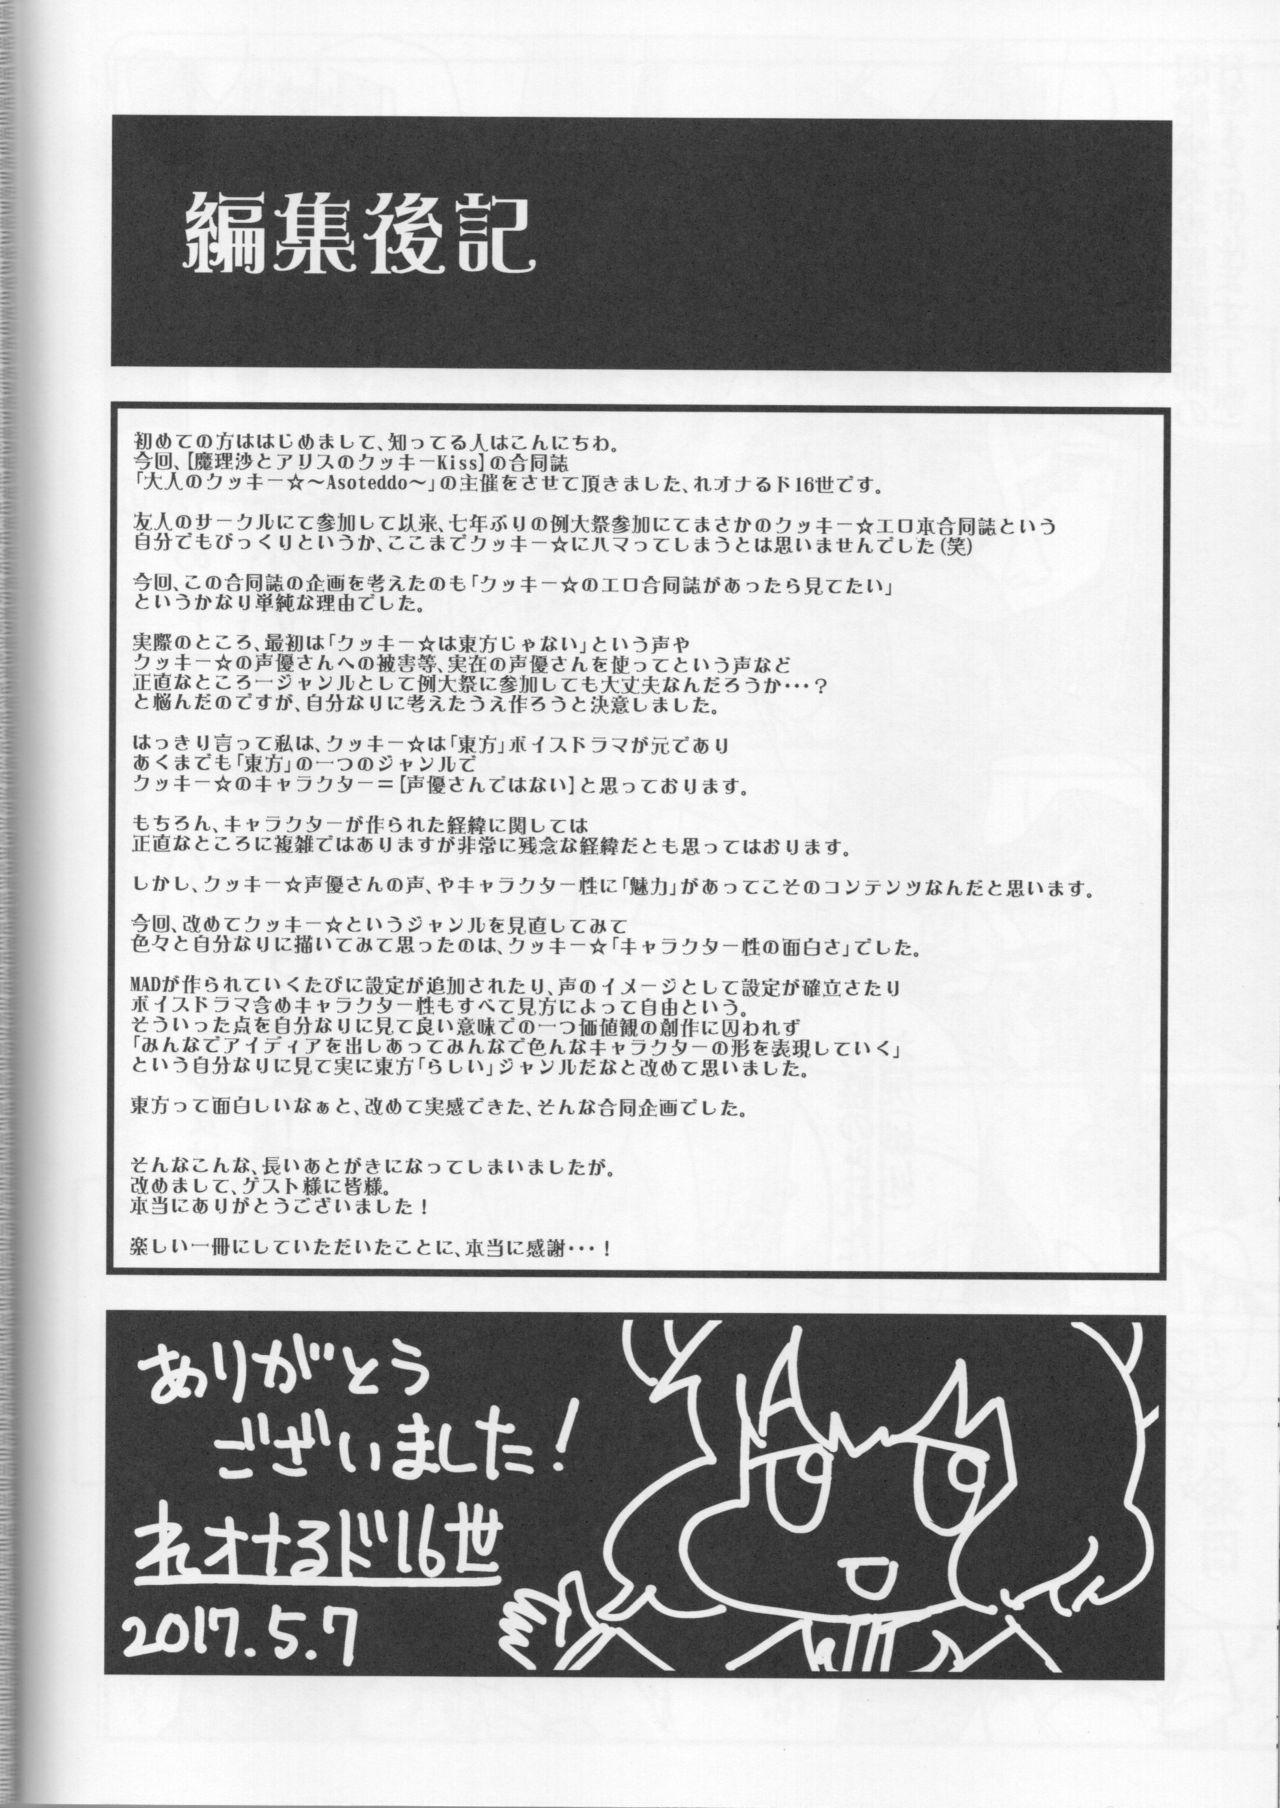 編集後記
初めての方ははじめまして、知ってる人はこんにちわ。
今回、【魔理沙とアリスのクッキーKiss】の合同誌
「大人のクッキー☆～Asoteddo～」の主催をさせて頂きました、れオナるド16世です。
友人のサークルにて参加して以来、七年ぶりの例大祭参加にてまさかのクッキー☆エロ本合同誌という
自分でもびっくりというか、ここまでクッキー☆にハマってしまうとは思いませんでした(笑)
今回、この合同誌の企画を考えたのも「クッキー☆のエロ合同誌があったら見てたい」
というかなり単純な理由でした。
実際のところ、最初は「クッキー☆は東方じゃない」という声や
クッキー☆の声優さんへの被害等、実在の声優さんを使ってという声など
正直なところ一ジャンルとして例大祭に参加しても大丈夫なんだろうか･･･？
と悩んだのですが、自分なりに考えたうえ作ろうと決意しました。
はっきり言って私は、クッキー☆は「東方」ボイスドラマが元であり
あくまでも「東方」の一つのジャンルで
クッキー☆のキャラクター＝【声優さんではない】と思っております。
もちろん、キャラクターが作られた経緯に関しては
正直なところに複雑ではありますが非常に残念な経緯だとも思ってはおります。
しかし、クッキー☆声優さんの声、やキャラクター性に「魅力」があってこそのコンテンツなんだと思います。
今回、改めてクッキー☆というジャンルを見直してみて
色々と自分なりに描いてみて思ったのは、クッキー☆「キャラクター性の面白さ」でした。
MADが作られていくたびに設定が追加されたり、声のイメージとして設定が確立さたり
ボイスドラマ含めキャラクター性もすべて見方によって自由という。
そういった点を自分なりに見て良い意味での一つ価値観の創作に囚われず
「みんなでアイディアを出しあってみんなで色んなキャラクターの形を表現していく」
という自分なりに見て実に東方「らしい」ジャンルだなと改めて思いました。
東方って面白しいなぁと、改めて実感できた、そんな合同企画でした。
そんなこんな、長いあとがきになってしまいましたが。
改めまして、ゲスト様に皆様。
本当にありがとうございました！
楽しい一冊にしていただいたことに、本当に感謝･･･！
ありがとう
ございました！
れオナるド16世
2017.5.7